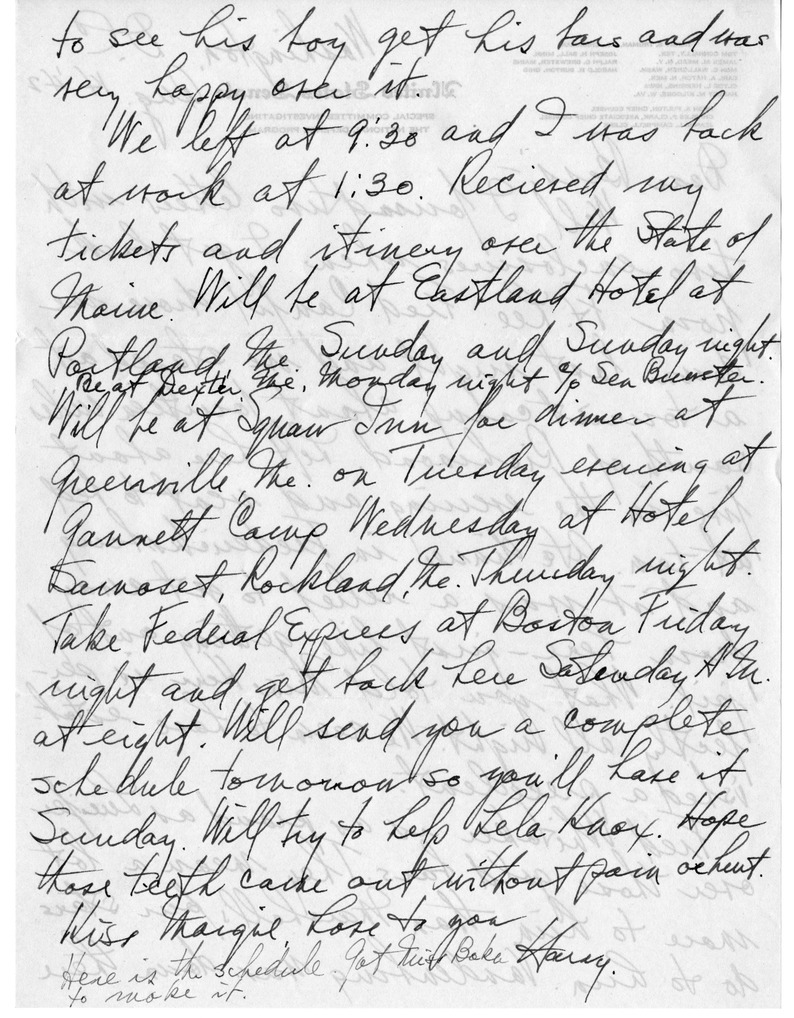 to see his boy get his bars and was
very happy over it.
We left at 9:30 and I was back
at work at 1:30. Recieved my
tickets and itinery over the State of
Maine. Will be at Eastland Hotel at
Portland, Me. Sunday and Sunday night.
Be at Dexter, Me, Monday night c/o Sen Brewster.
Will be at Squaw Inn for dinner at
Greenville, Me. on Tuesday evening at
Gannett Camp Wednesday at Hotel
Samoset, Rockland, Me. Thursday night.
Take Federal Express at Boston Friday
night and get back here Saturday A.M.
at eight. Will send you a complete
schedule tomorrow so you'll have it
Sunday. Will try to help Lela Knox. Hope
those teeth came out without pain or hurt.
Kiss Margie, love to you
Harry.
Here is the schedule. Got Miss Boka
to make it.